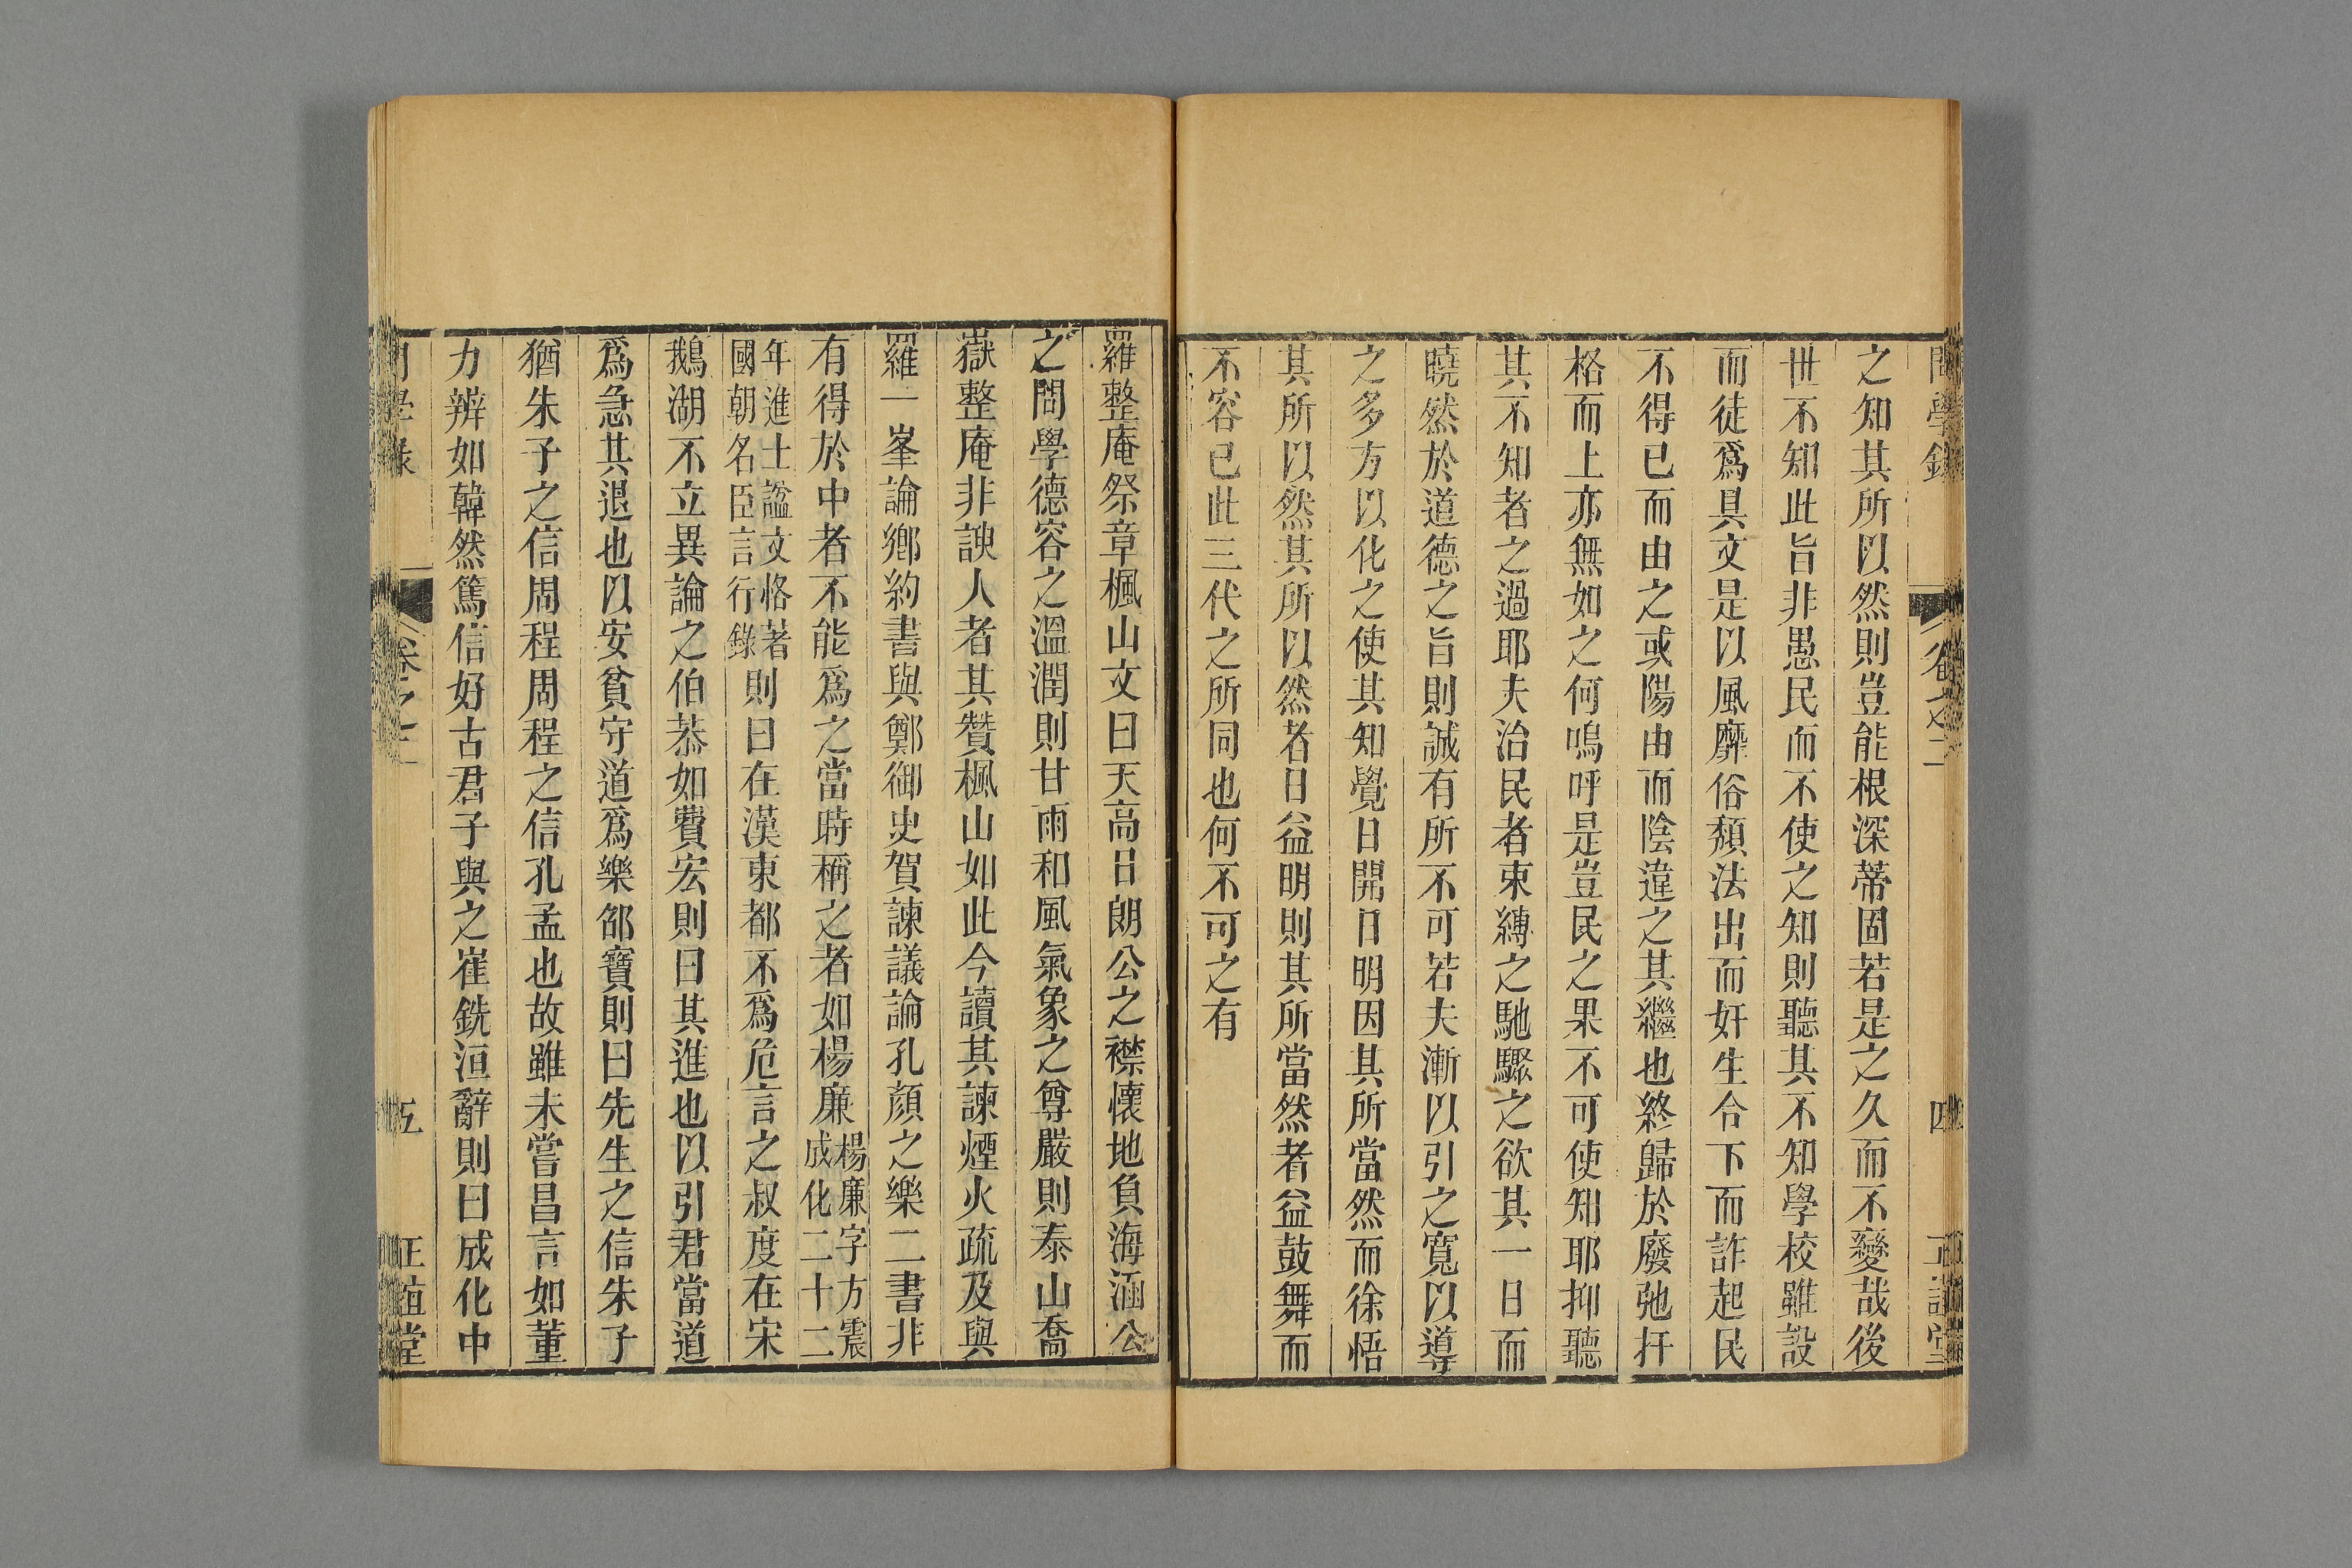 問學錄 卷之二 四 正誼堂
之知其所以然則豈能根深蒂固若是之久而不變哉後
世不知此旨非愚民而不使之知則聽其不知學校雖設
而徒爲具文是以風靡俗頹法出而奸生令下而詐起民
不得已而由之或陽由而陰違之其繼也終歸於廢弛扞
格而上亦無如之何嗚呼是豈民之果不可使知耶抑聽
其不知者之過耶夫治民者束縛之馳驟之欲其一日而
曉然於道德之旨則誠有所不可若夫漸以引之寬以導
之多方以化之使其知覺日開日明因其所當然而徐悟
其所以然其所以然者日益明則其所當然者益鼓舞而
不容已此三代之所同也何不可之有
羅整庵祭章楓山文曰天高日朗公之襟懷地負海涵公
之問學德容之溫潤則甘雨和風氣象之尊嚴則泰山喬
嶽整庵非諛人者其贊楓山如此今讀其諫煙火疏及與
羅一峯論鄉約書與鄭御史賀諫議論孔顏之樂二書非
有得於中者不能爲之當時稱之者如楊廉楊廉字方震成化二十二
年進士謚文恪著國朝名臣言行錄則曰在漢東都不爲危言之叔度在宋
鵝湖不立異論之伯恭如費宏則曰其進也以引君當道
爲急其退也以安貧守道爲樂邵寶則曰先生之信朱子
猶朱子之信周程周程之信孔孟也故雖未嘗昌言如董
力辨如韓然篤信好古君子與之崔銑洹辭則曰成化中
問學錄 卷之二 五 正誼堂